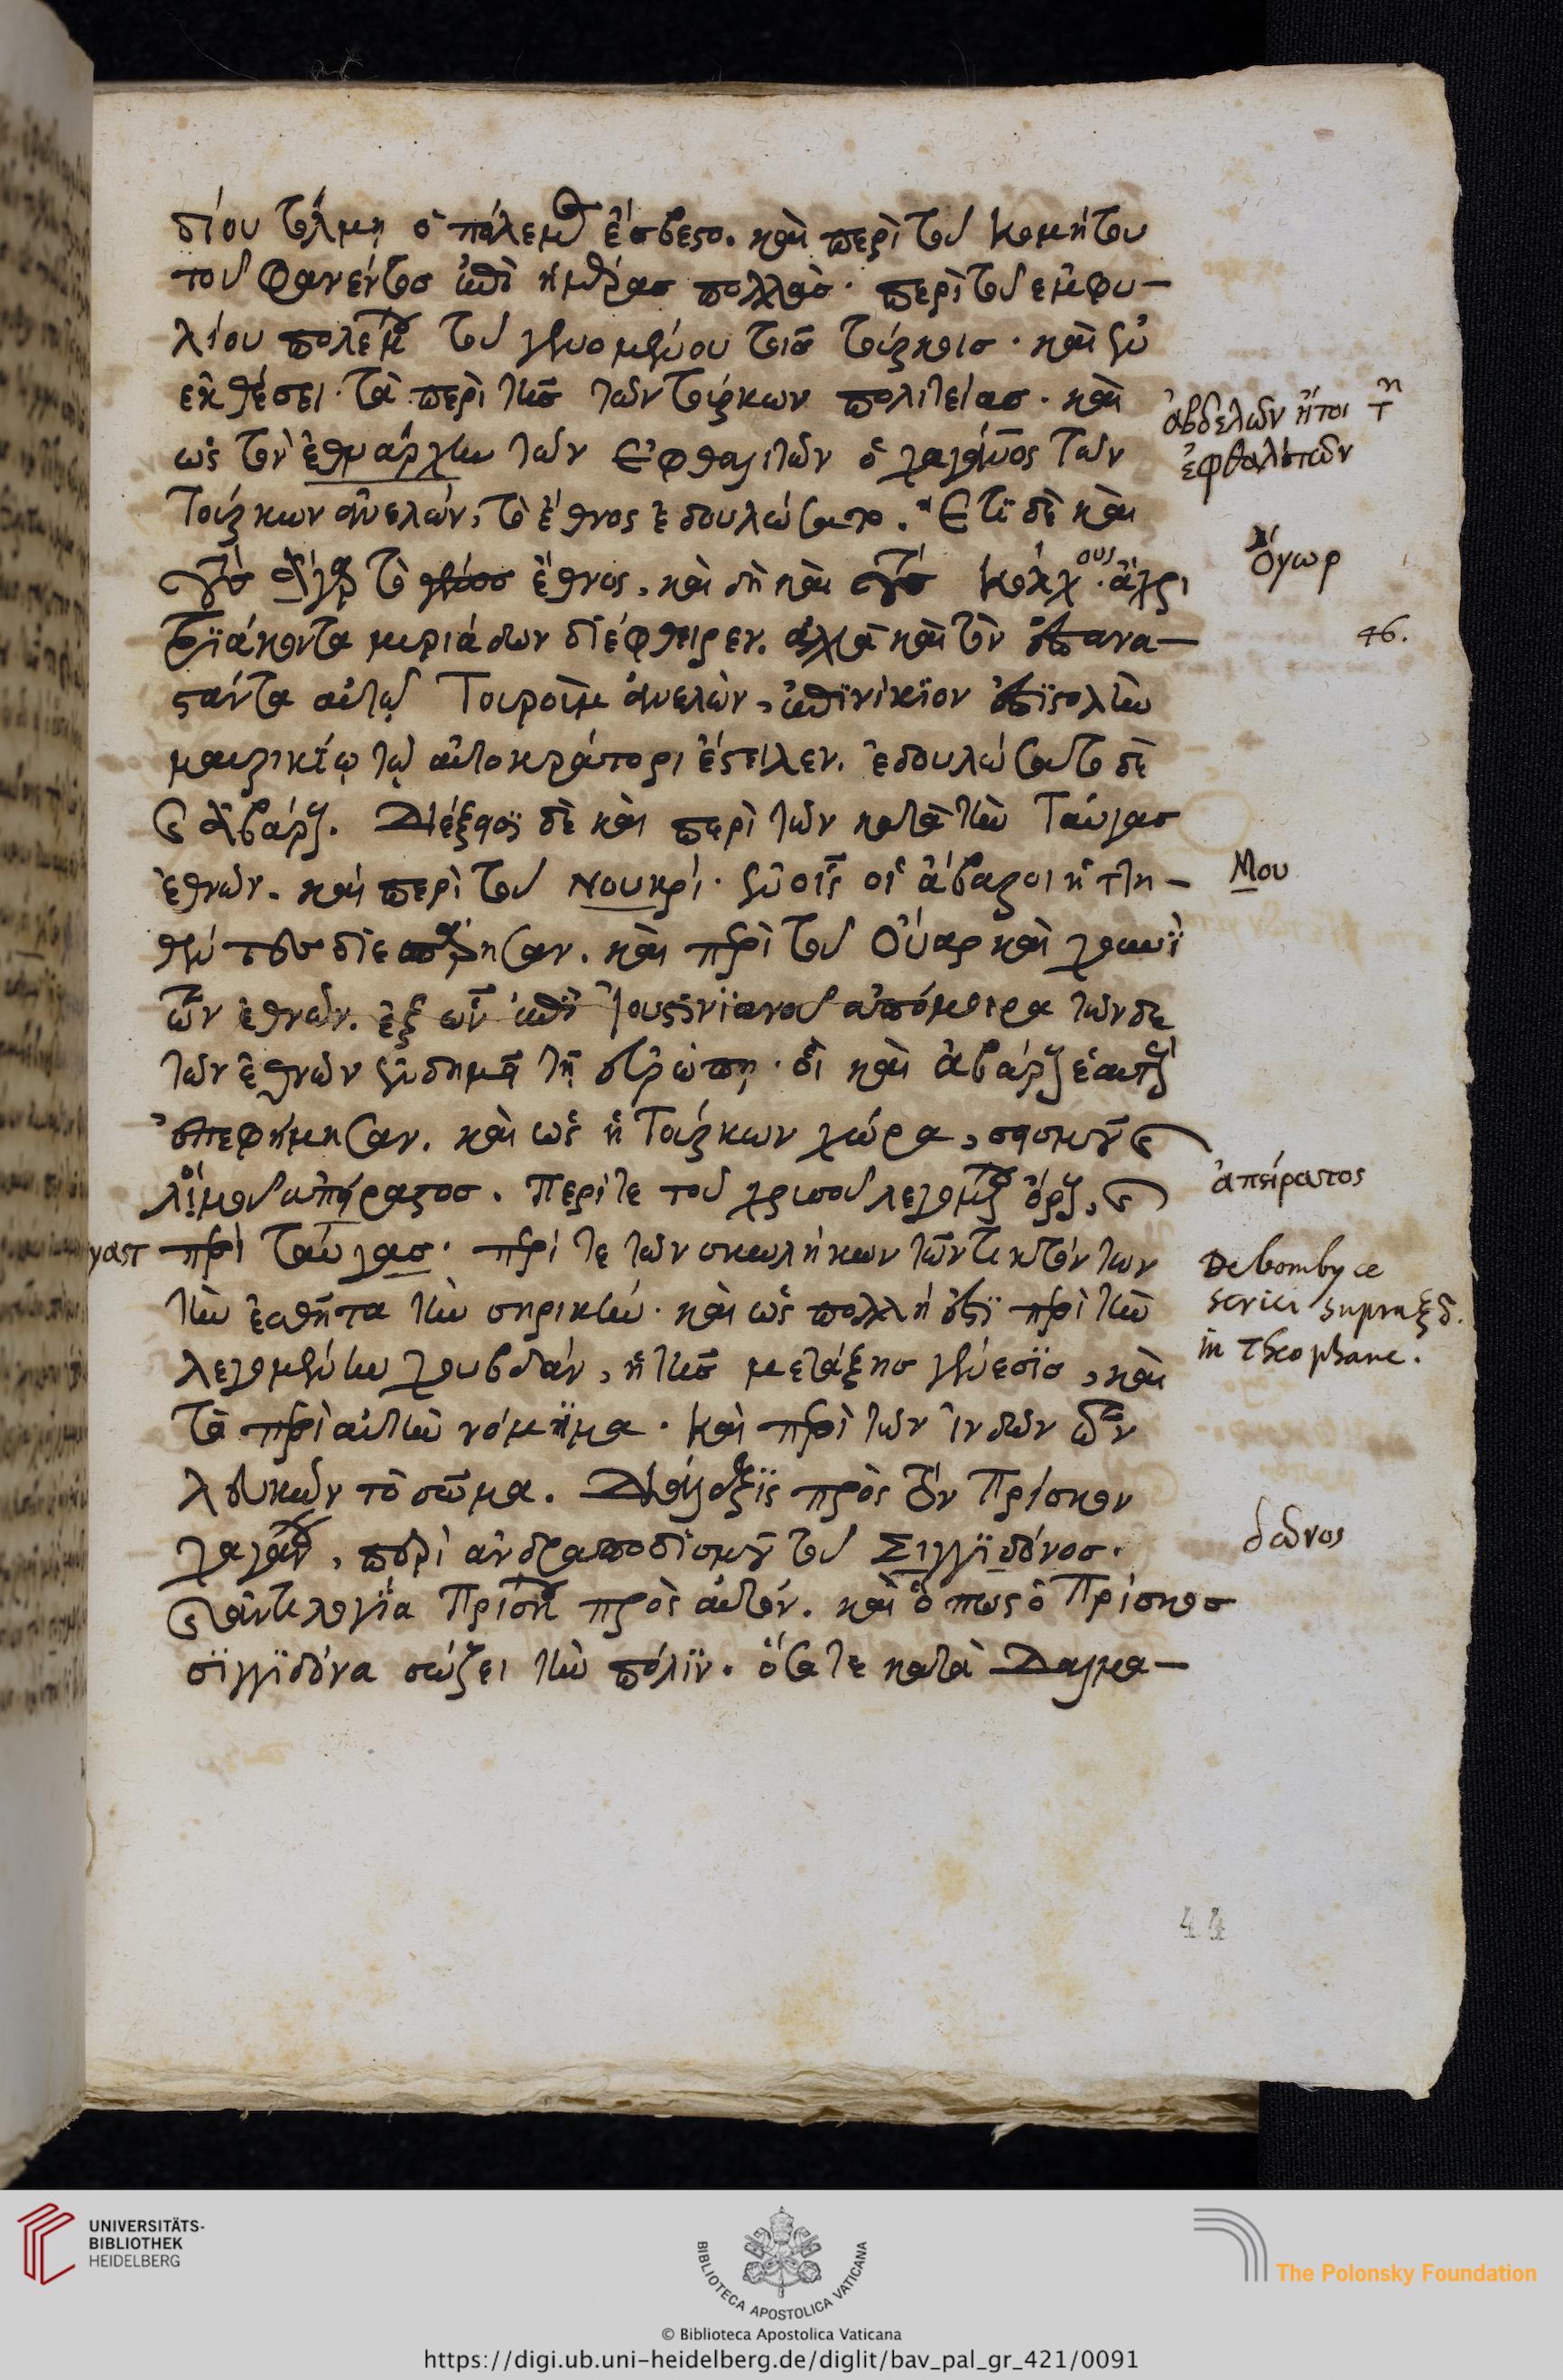 δίου τόλμη ὁ πόλεμος ἔσβεστο. καὶ περὶ τοῦ κομήτου
τοῦ φανέντος ἐπὶ ἡμέρας πολλάς. περὶ τοῦ ἐμφυ-
λίου πολέμου τοῦ γενομένου τοῖς τούρκοις. καὶ ἐν
ἐκθέσει. τὰ περὶ τῆς τῶν τούρκων πολιτείας. καὶ
ὡς τὸν ἐθνάρχην τῶν Ἐφθαλιτῶν ὁ χαγάνος τῶν
Τούρκων ἀνελών, τὸ ἔθνος ἐδουλώσατο. Ἔτι δὲ καὶ
τὸ ἔθνος, καὶ δὴ καὶ Κολχ ους. ἄχρι
τριάκοντα μυριάδων διέφθειρεν. ἀλλὰ καὶ τὸν ἐπανα-
στάντα αὐτῷ Τουροὺμ ἀνελὼν, ἐπινίκιον ἐπιστολὴν
μαυρικίῳ τῷ αὐτοκράτορι ἔστειλεν. ἐδουλώσατο δὲ
καὶ ἀβάρους. Διέξεισι δὲ καὶ περὶ τῶν κατὰ τὴν Ταύγας
ἐθνῶν. καὶ περὶ τοῦ Νουκρί. ἐν οἷς οἱ ἄβαροι ἡττη-
θέντες διεσπάρησαν. καὶ περὶ τοῦ Οὐὰρ καὶ χουνὶ
τῶν ἐθνῶν. ἐξ ὧν ἐπὶ Ἰουστινιανοῦ ἀπόμοιρα τῶνδε
τῶν ἐθνῶν ἐνδημεῖ τῇ εὐρώπῃ. οἳ καὶ ἀβάρους ἑαυτοὺς
ἐπεφήμησαν. καὶ ὡς ἡ Τούρκων χώρα, σεισμοῦ καὶ
λοιμοῦ ἀπήραστος. Περί τε τοῦ χρυσοῦ λεγομένου ὄρους, καὶ
περὶ ταύγας. περί τε τῶν σκωλήκων τῶν τικτόντων
τὴν ἐσθῆτα τὴν σηρικήν. καὶ ὡς πολλὴ ἐστὶ περὶ τὴν
λεγομένην χουβδάν, ἡ τῆς μετάξης γένεσις, καὶ
τὰ περὶ αὐτὴν νόμιμα. καὶ περὶ τῶν ἰνδῶν τῶν
λευκῶν τὸ σῶμα. Διάλεξις πρὸς τὸν Πρίσκον
χαγάνου, περὶ ἀνδραποδισμοῦ τοῦ Σιγγιδόνος.
καὶ ἀντιλογία Πρίσκου πρὸς αὐτόν. καὶ ὅπως ὁ Πρίσκος
σιγγιδόνα σώζει τὴν πόλιν. ὅσα τε κατὰ Δαλμα-
ἀβδελῶν ἤτοι τ
ἐφθαλιτῶν
ὄγωρ
46.
Μου
ἀπείραστος
γαστ
De bombyce
serici supra ξδ.
in Theophane.
δῶνος
44
UNIVERSITÄTS-
BIBLIOTHEK
HEIDELBERG
BIBLIOTECA APOSTOLICA VATICANA
The Polonsky Foundation
© Biblioteca Apostolica Vaticana
https://digi.ub.uni-heidelberg.de/diglit/bav_pal_gr_421/0091